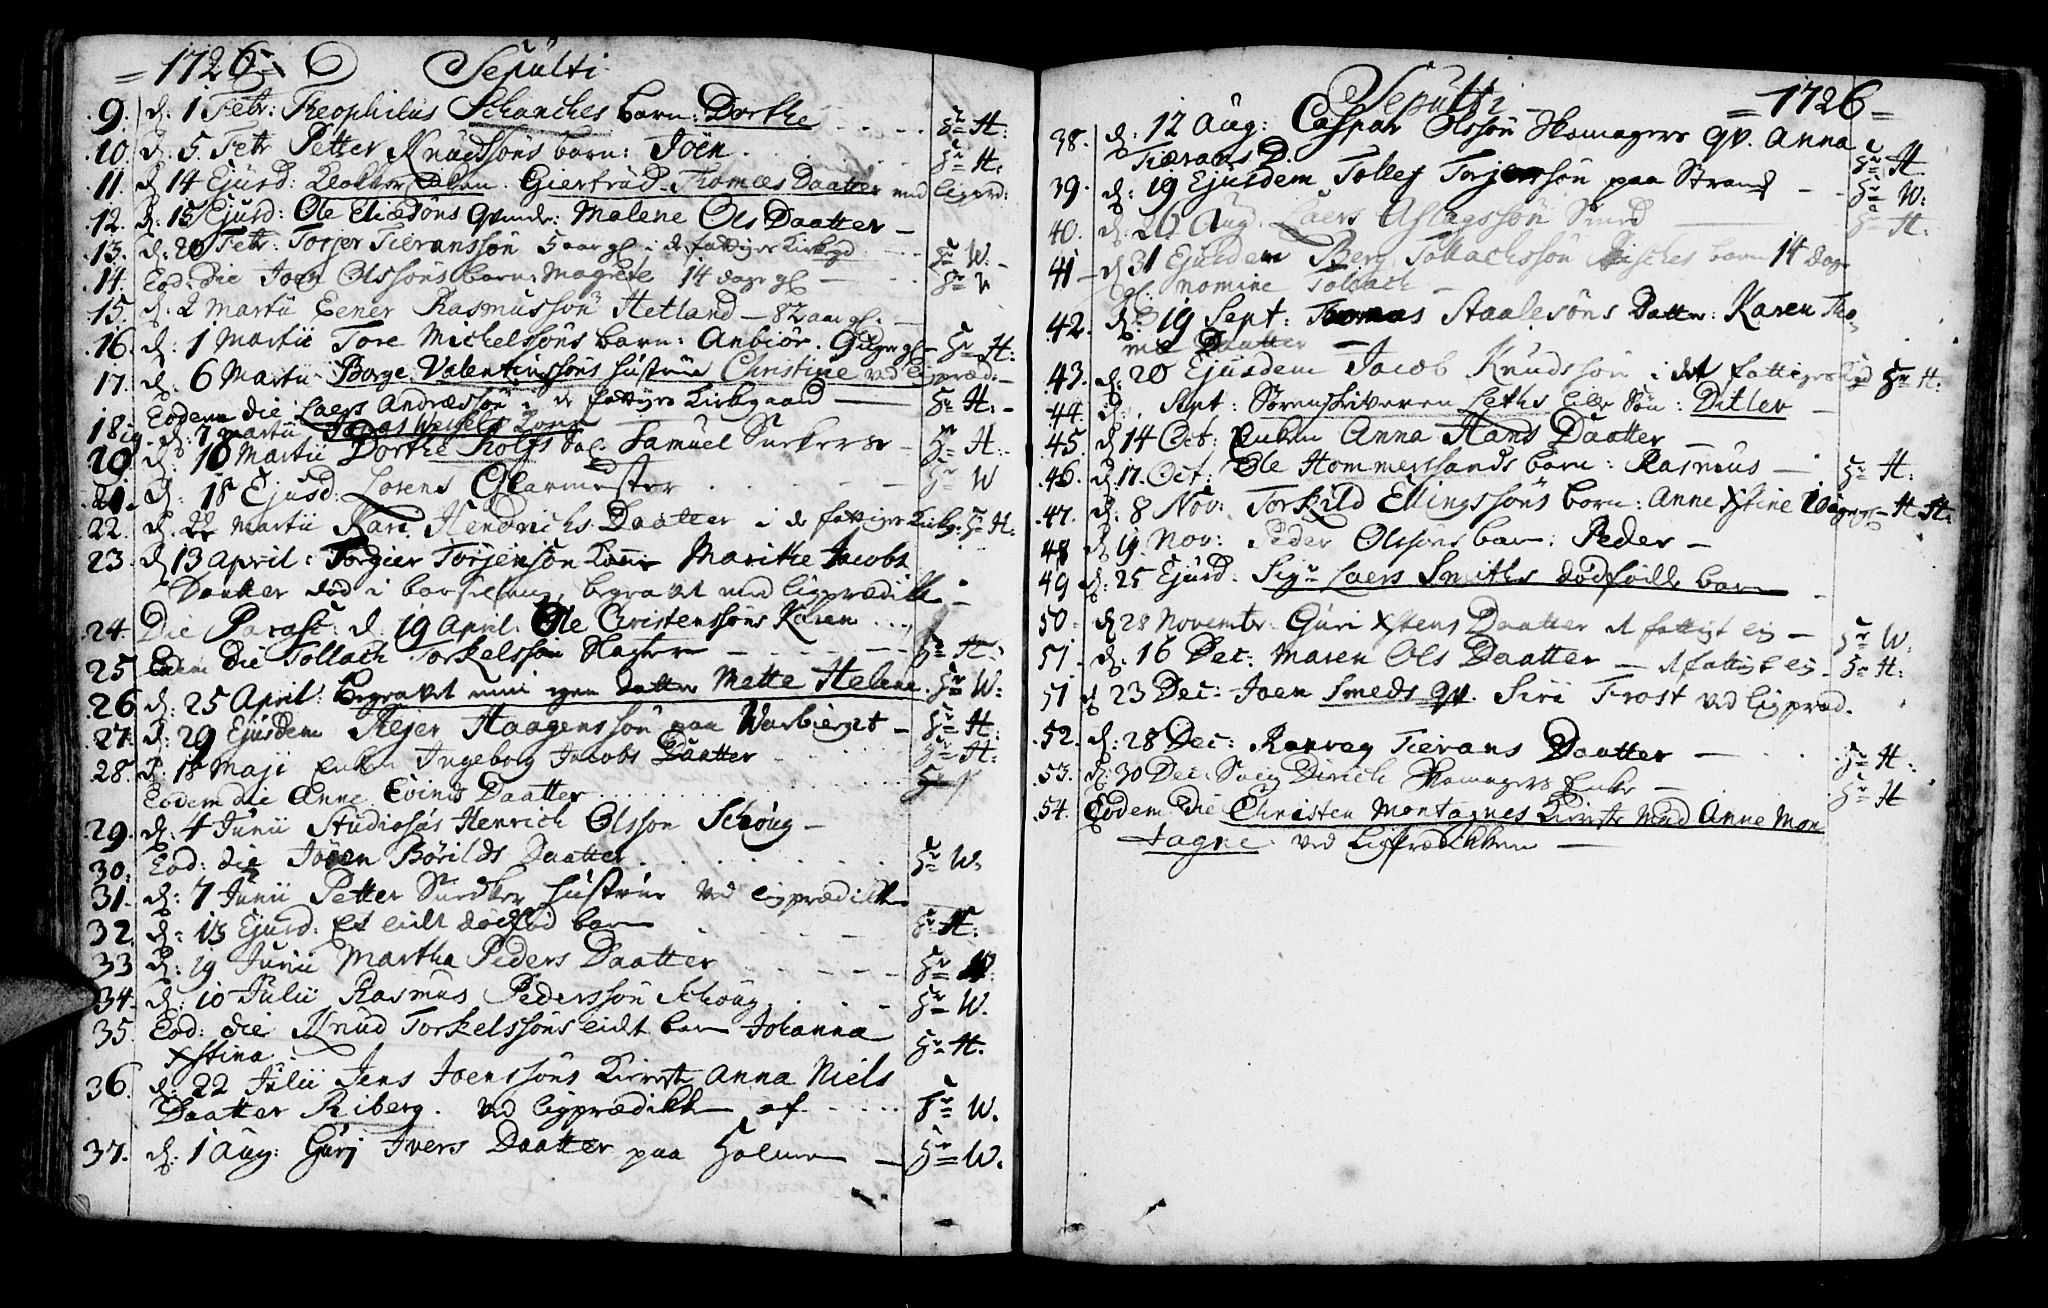 = 1726 = Sepulti
9. d: 1 Febr: Theophilus Schanches barn: Dorthe Hr H:
10. d. 5. Febr Petter Knudssøns barn: Joen. Hr H.
11. d 14 Ejusd: Giertrud Thomæs Daatter med ligpræd:
12. d. 15 Ejusd: Ole Qvinde: Malene Ols Daatter –
13. d: 20 Febr: Torjer Tieranssøn 5 aar gl. i de fattiges Kirkegd Hr W. –
14. Eod: die Joen Olssøns barn: Magrete 14 dage gl – Hr
15. d: 2 Martii Eener Rasmussøn Hetland – 82 aar gl. –
16. d: 1 Martii Tore Michelsøns barn: Anbiør. gl – Hr H:
17. d. 6 Martii Borge Valentinssøns hustrue Christine ved ligpræd: –
18 Eodem die Laers Andræssøn i de fattiges Kirkgaard Hr H: –
19. d: 7 Martii Jonas Wessels Kone
20 d: 10 Martii Dorthe Rolfs Samuel – Hr H:
21. d: 18 Ejusd: Lorens Glarmester Hr W
22. d. 22 Martii Kari Hendrichs Daatter i de fattiges Kirkg. Hr H:
23. d 13 April: Torgier Torjensøn Kone Marithe Jacobs
Daatter død i barselseng, begravet med ligprædik –
24. Die Parasc: d. 19 April. Ole Christenssøns Karen
25 Eodem die Tollach Torkelssøn Hr H:
26 d: 25 April: Begravet min egen datter Mette Helene. Hr W:
27. d: 29 Ejusdem Rejer Haagenssøn paa Warbierget – Hr H:
28. d: 18 Maji Enken Ingeborg Jacobs Daatter Hr H:
Eodem die Anne Evinds Daatter
29. d: 4 Junii Studiosus Henrich Olsson Schoug –
30: Eod: die Joren Børilds Daatter Hr W.
31. d: 7 Junii Petter hustrue ved ligprædik
32. d: 13 Ejusd: Et lidt dødfød barn Hr H:
33 d: 19 Junii Martha Peders Daatter Hr W.
34. d: 10 Julii Rasmus Pederssøn Schoug Hr W.
35. Eod: die Knud Torkelssøns lidt barn Johanna
Xstina: Hr H.
36. d: 22 Julii Jens Joenssøns Kiereste Anna Niels
Daatter Riberg. ved ligprædiken af Hr W.
37. d: 1 Aug: Guri Ivers Daatter paa Holmen – Hr W.
Sepulti = 1726 =
38. d: 12 Aug: Caspar Olssøn Skomagers qv. Anna
Tierans D. Hr H
39. d: 19 Ejusdem Tollef Torjerssøn paa Strand – – Hr W:
40. d: 20 Aug. Laers Aslagssøn Smed Hr H.
41 – d 31 Ejusdem Berg Tollachssøn barn 14 Dage
gl: nomine Tollach –
42. d: 19 Sept: Thomas Staalesøns Datter: Karen Tho-
mæ Daatter –
43. d: 20 Ejusdem Jacob Knudssøn i det fattiges Kgd Hr H.
44. d: . Sept: Sørenskriveren Leths lille Søn: Ditlev –
45. d 14 Oct: Enken Anna Hans Daatter –
46. d: 17. Oct: Ole Hommerssands barn: Rasmus – Hr H:
47. d: 8 Nov: Torkild Ellingssøns barn: Anne Xstine H H:
48 d 19. Nov: Peder Olssøns barn: Peder –
49 d: 25 Ejusd: Sigr Laers Smiths dødfødde barn
50. d 28 Novembr Guri Xstens Daatter et fattigt lig – Hr W.
51 – d: 16 Dec: Maren Ols Daatter – et fattigt lig Hr H:
51 d 23 Dec: Joen Smeds qv. Siri Frost ved ligpræd.
52. d: 28 Dec: Ranvag Tierans Daatter – Hr H:
53. d: 30 Dec: Dirich Skomagers Enke – Hr H
54. Eodem Die Christen Montagnes Kiereste Mad Anne Mon
tagne ved Ligprædikken –